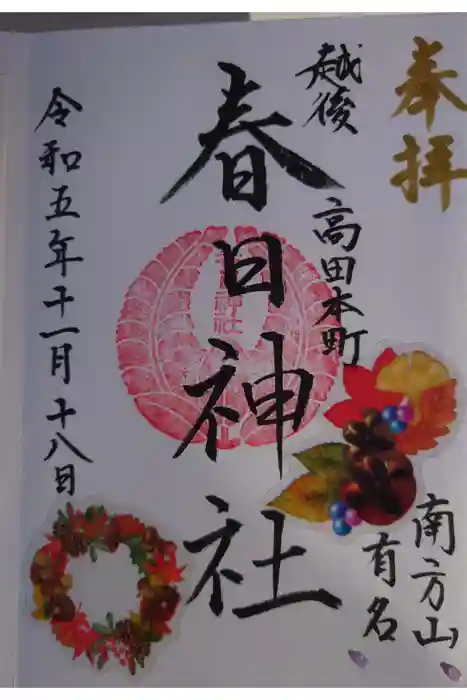 奉拝
越後
高田本町
春日神社
南方山
有名
令和五年十一月十八日